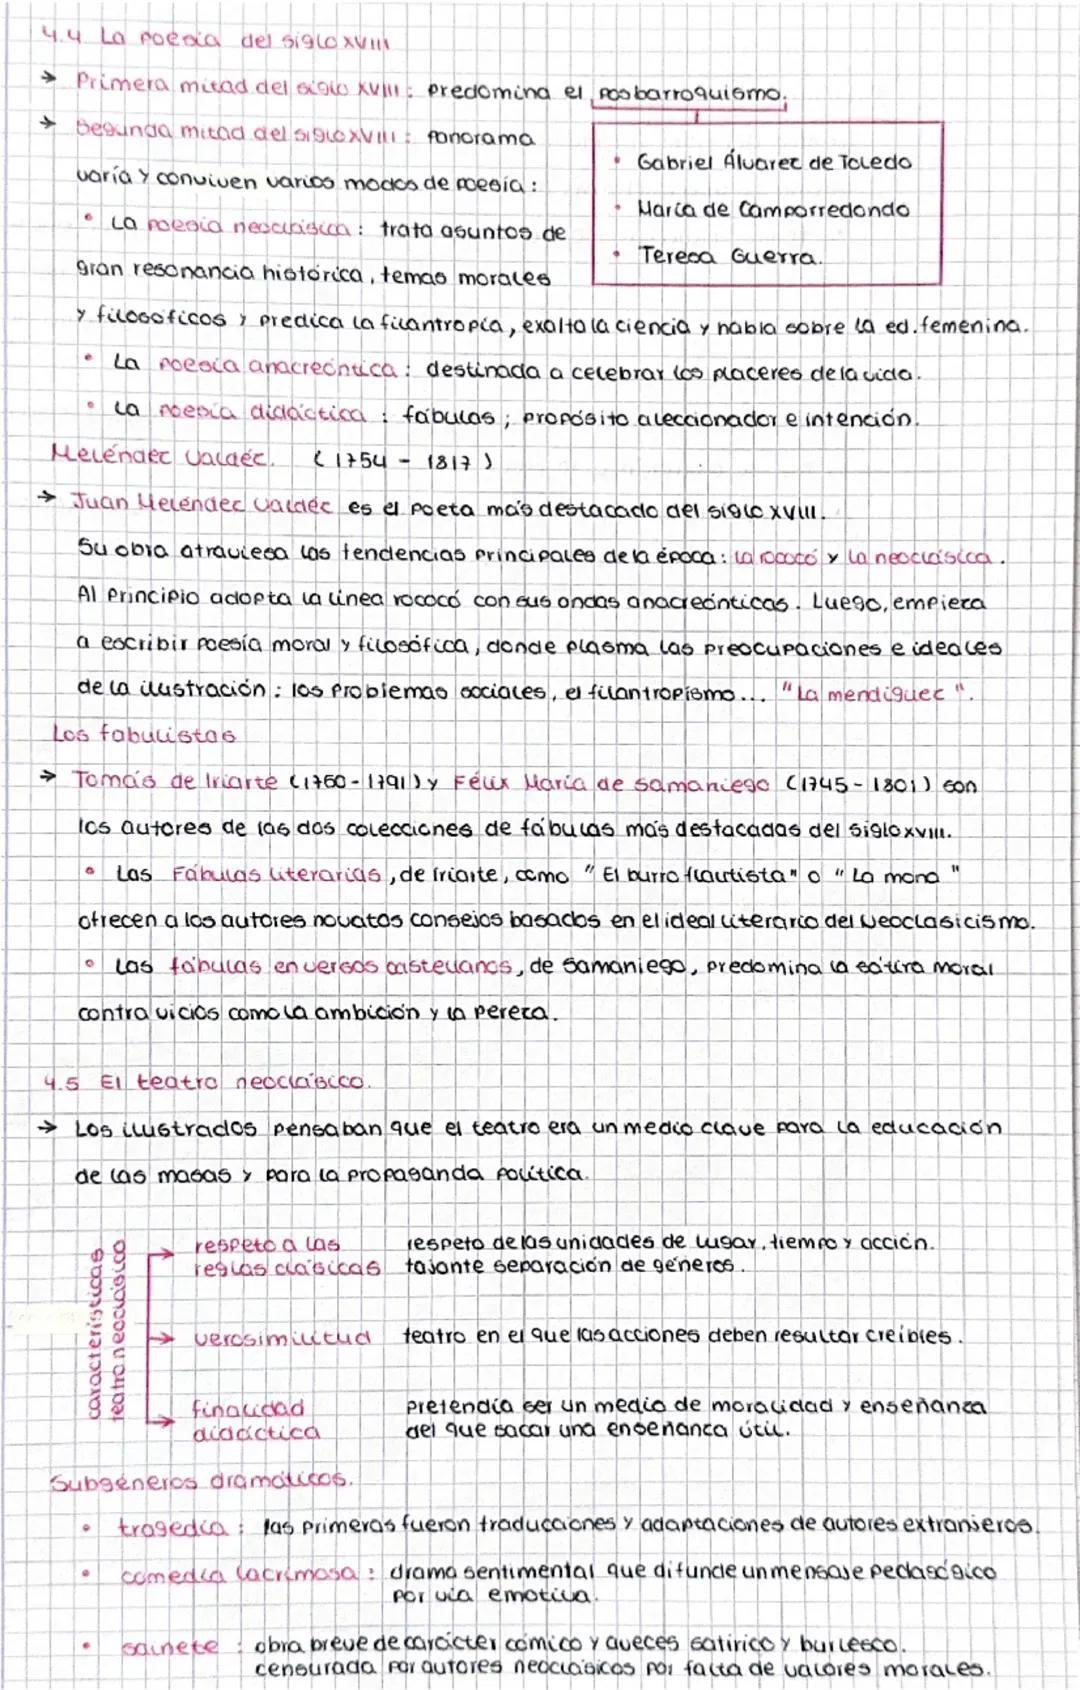 4.4 La poesía del siglo XVIII
→ Primera mitad del siglo XVIII: predomina el posbarroquismo.
→ Segunda mitad del siglo XVIII: panorama
varía y conviven varios modos de poesía:
• La poesía neoclásica: trata asuntos de
gran resonancia histórica, temas morales
• Gabriel Álvarez de Toledo
• María de Camporredondo
• Teresa Guerra.
y filosóficos y predica la filantropía, exalta la ciencia y habla sobre la ed. femenina.
• La poesía anacreóntica: destinada a celebrar los placeres de la vida.
• La poesía didáctica: fábulas; propósito aleccionador e intención.
Meléndez Valdéz. (1754 - 1817)
→ Juan Meléndez Valdéz es el poeta más destacado del siglo XVIII.
Su obra atraviesa las tendencias principales de la época: la rococó y la neoclásica.
Al principio adopta la línea rococó con sus ondas anacreónticas. Luego, empieza
a escribir poesía moral y filosófica, donde plasma las preocupaciones e ideales
de la ilustración: los problemas sociales, el filantropismo... "La mendiguez".
Los fabulistas
→ Tomás de Iriarte (1760-1791) y Félix María de Samaniego (1745-1801) son
los autores de las dos colecciones de fábulas más destacadas del siglo XVIII.
• Las Fábulas literarias, de Iriarte, como "El burro flautista" o "La mona"
ofrecen a los autores novatos consejos basados en el ideal literario del Neoclasicismo.
• Las fábulas en versos castellanos, de Samaniego, predomina la sátira moral
contra vicios como la ambición y la pereza.
4.5 El teatro neoclásico.
→ Los ilustrados pensaban que el teatro era un medio clave para la educación
de las masas y para la propaganda política.
características
teatro neoclásico
→ respeto a las respeto de las unidades de lugar, tiempo y acción.
reglas clásicas tajante separación de géneros.
→ verosimilitud teatro en el que las acciones deben resultar creíbles.
→ finalidad pretendía ser un medio de moralidad y enseñanza
didáctica del que sacar una enseñanza útil.
Subgéneros dramáticos.
• tragedia: las primeras fueron traducciones y adaptaciones de autores extranjeros.
• comedia lacrimosa: drama sentimental que difunde un mensaje pedagógico
por vía emotiva.
• sainete: obra breve de carácter cómico y aveces satírico y burlesco.
censurada por autores neoclásicos por falta de valores morales.